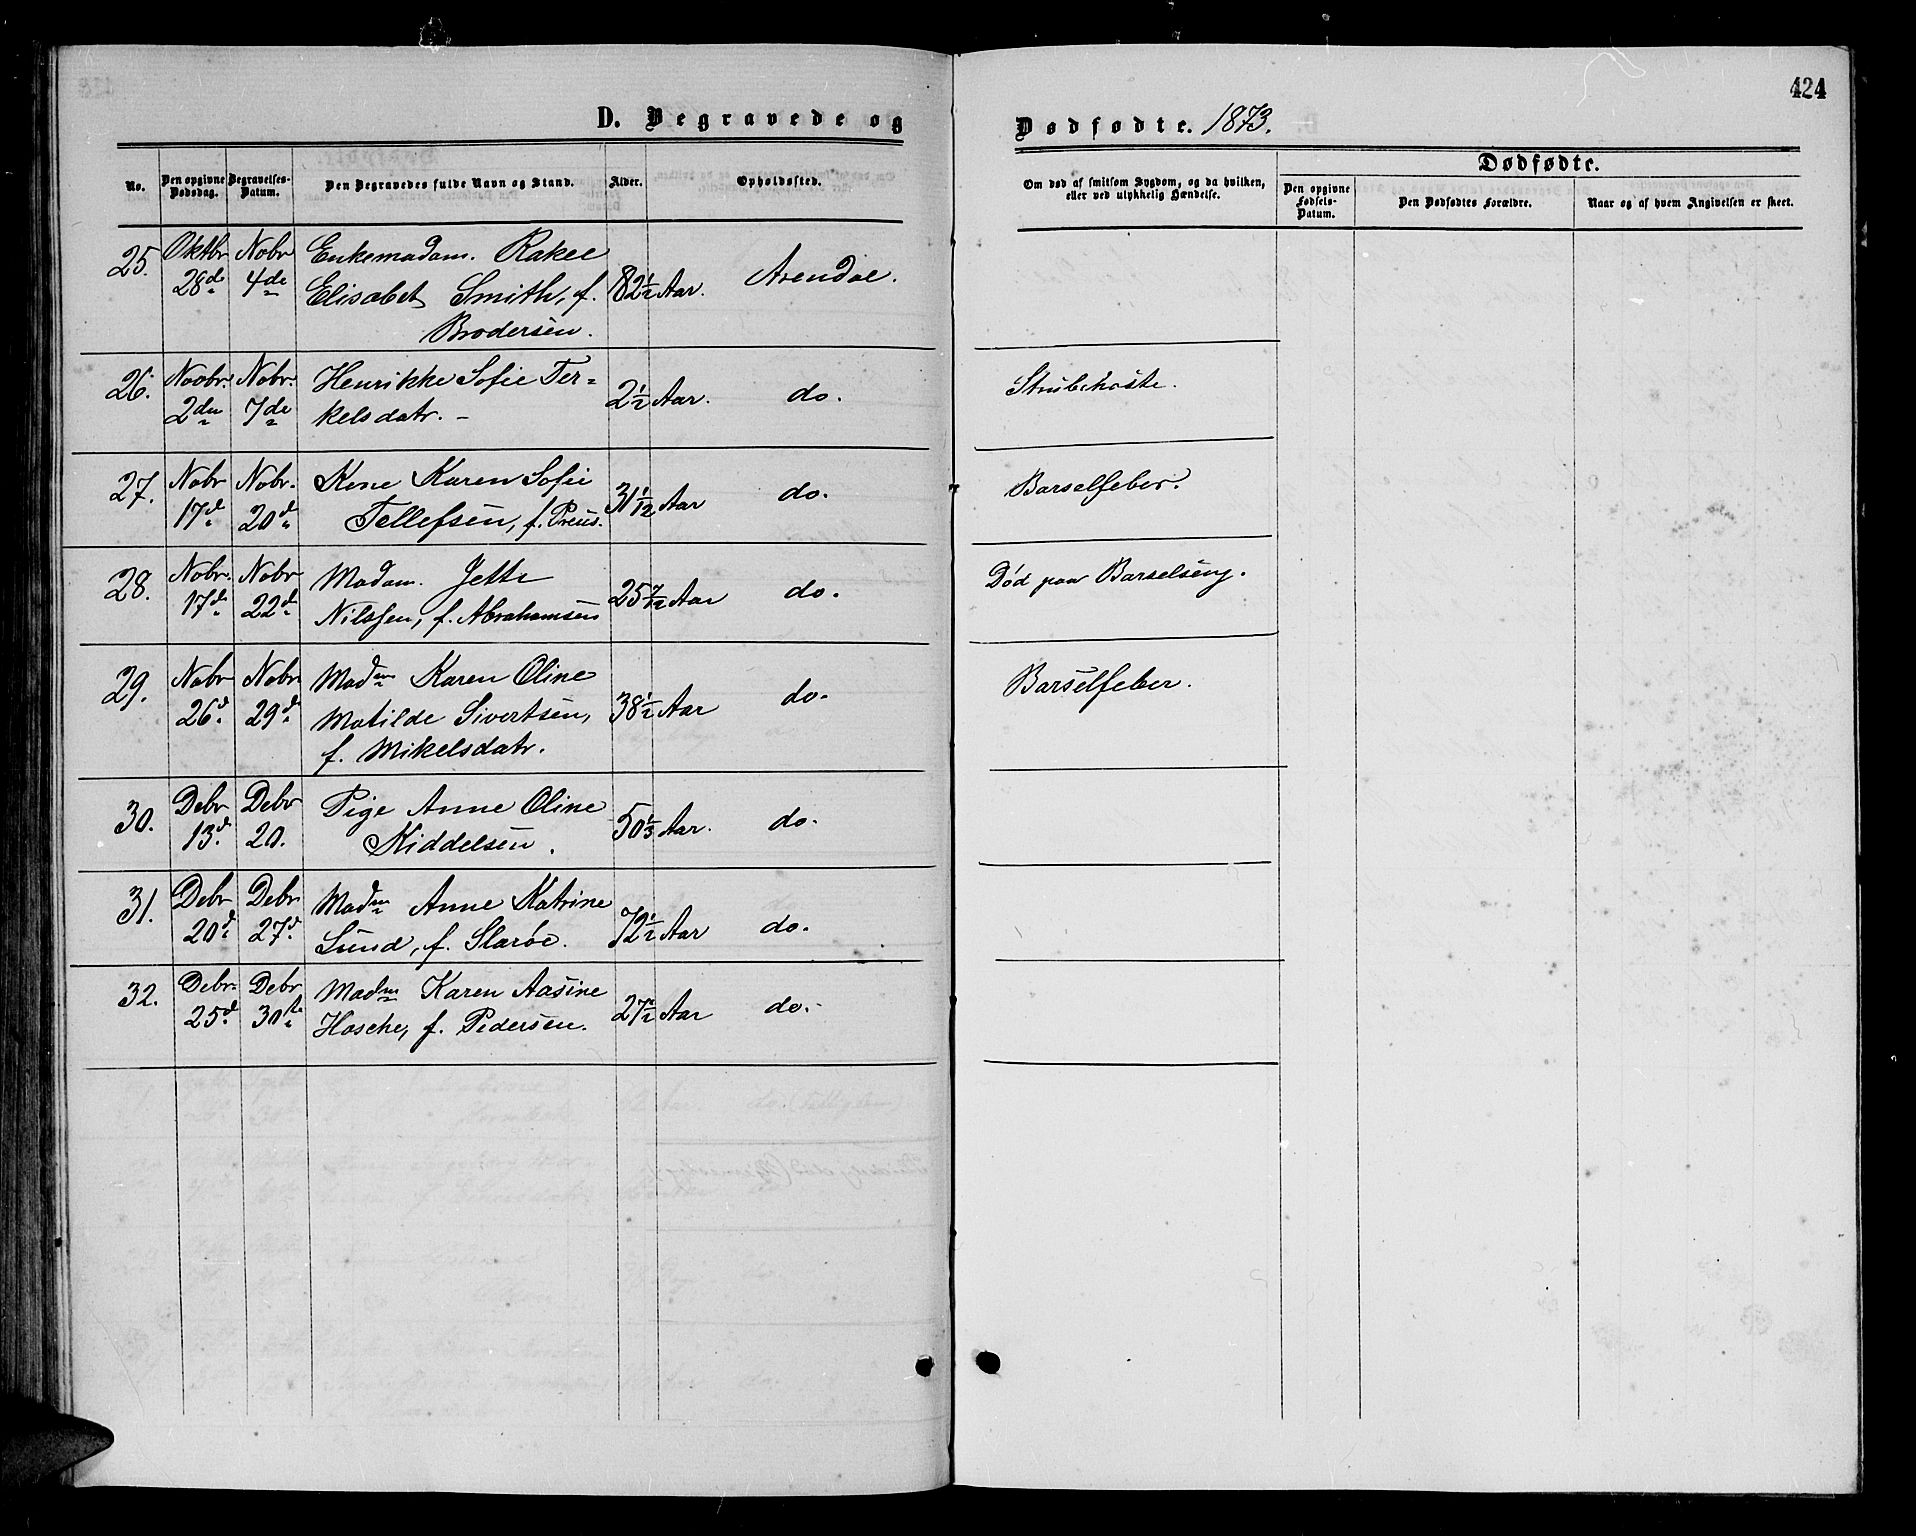 424
D. Begravede og Dødfødte. 1873.
Dødfødte.
No. Den opgivne Dødsdag. Begravelses-Datum. Den Begravedes fulde Navn og Stand. Alder. Opholdssted. Om død af smitsom Sygdom, og da hvilken, eller ved ulykkelig Hændelse. Den opgivne Fødsels-Datum. Den Dødfødtes Forældre. Naar og af hvem Angivelsen er skeet.
25. Oktbr Nobr Enkemadam. Rakel
28de 4de Elisabet Smith, f. 82 1/2 Aar. Arendal.
Brodersen.
26. Novbr. Nobr. Henrikke Sofie Ter=
2den 7de kelsdatr. – 2 1/2 Aar. do. Strubehoste.
27. Nobr Nobr. Karen Sofie
17d. 20d. Tellefsen, f. Preus. 31 1/12 Aar do. Barselfeber.
28. Nobr. Nobr Madam. Jette
17d. 22d. Nilssen, f. Abrahamsen 25 7/12 Aar do. Død paa Barselseng.
29. Nobr Nobr Madm Karen Oline
26d. 29d. Matilde Sivertsen, 38 1/2 Aar do. Barselfeber.
f. Mikelsdatr.
30. Debr Debr Pige Anne Oline
13d. 20. Kiddelsen. 50 1/3 Aar. do.
31. Debr Debr Madm Anne Katrine
20d. 27d. Lund, f. 72 1/2 Aar do.
32. Debr. Debr Madm Karen Aasine
25d. 30te Hasche, f. Pedersen. 27 1/2 Aar do.